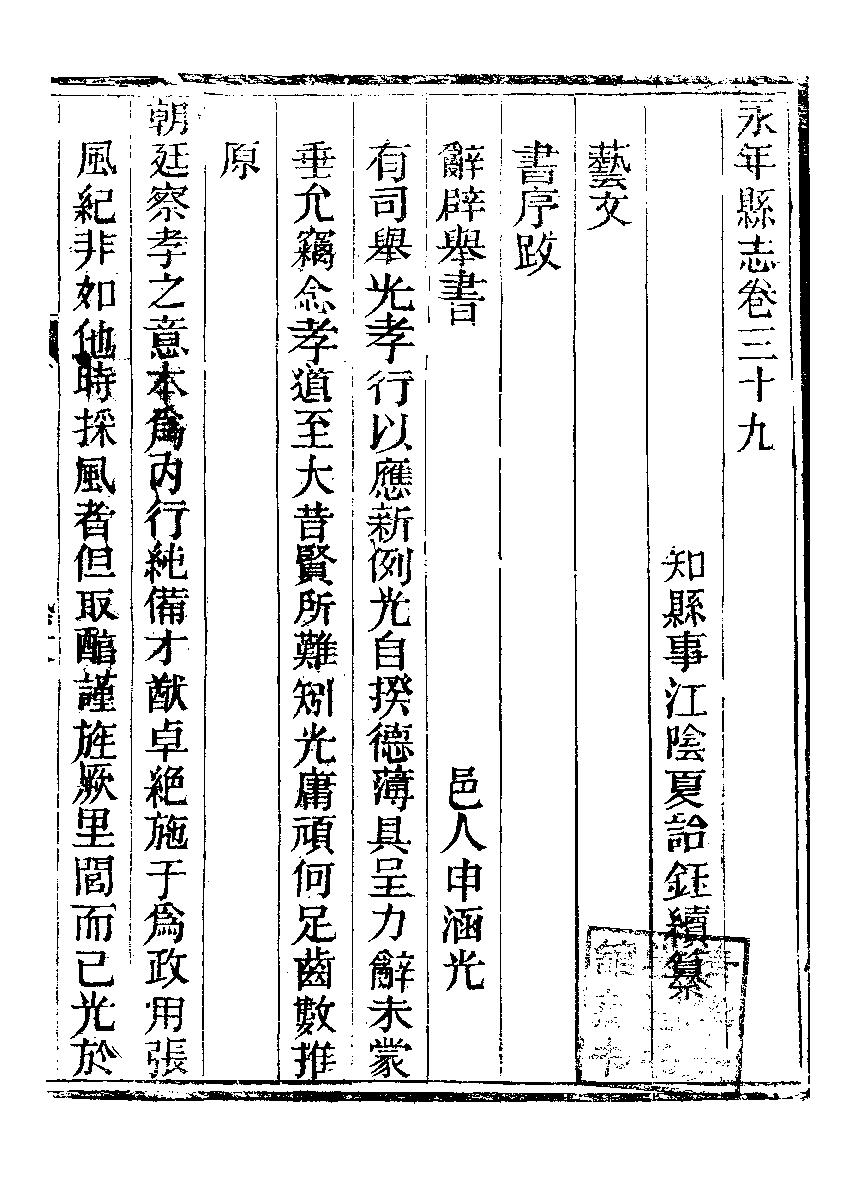 永年縣志卷三十九
知縣事江陰夏詒鈺續纂
藝文
書序跋
辭辟舉書
邑人申涵光
有司舉光孝行以應新例光自揆德薄具呈力辭未蒙
垂允竊念孝道至大昔賢所難矧光庸頑何足齒數推
原
朝廷察孝之意本爲內行純備才猷卓絶施于爲政用張
風紀非如他時採風者但取醕謹旌厥里閭而已光於